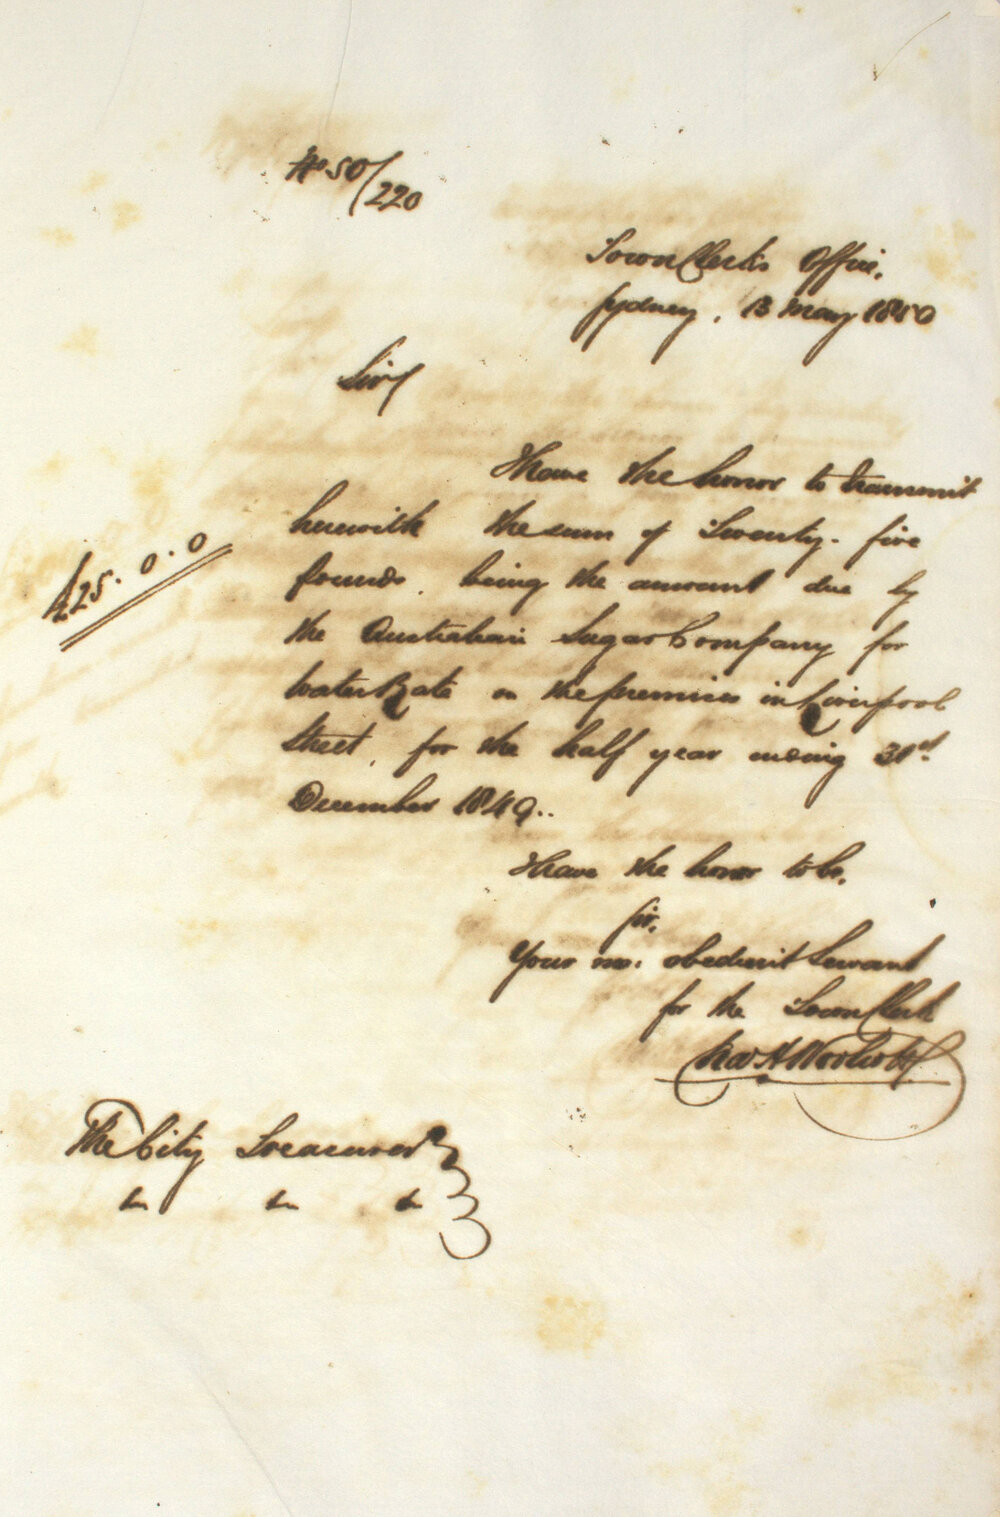 No 50/220
Town Clerk's Office,
Sydney, 13 May 1850
Sir,
I have the honor to transmit
herewith the sum of Twenty-five
£25.0.0
pounds, being the amount due by
the Australian Sugar Company for
Water Rate on the premises in Liverpool
Street, for the half year ending 31st
December 1849..
I have the honor to be,
Sir,
Your mo. obedient Servant
for the Town Clerk
The City Treasurer